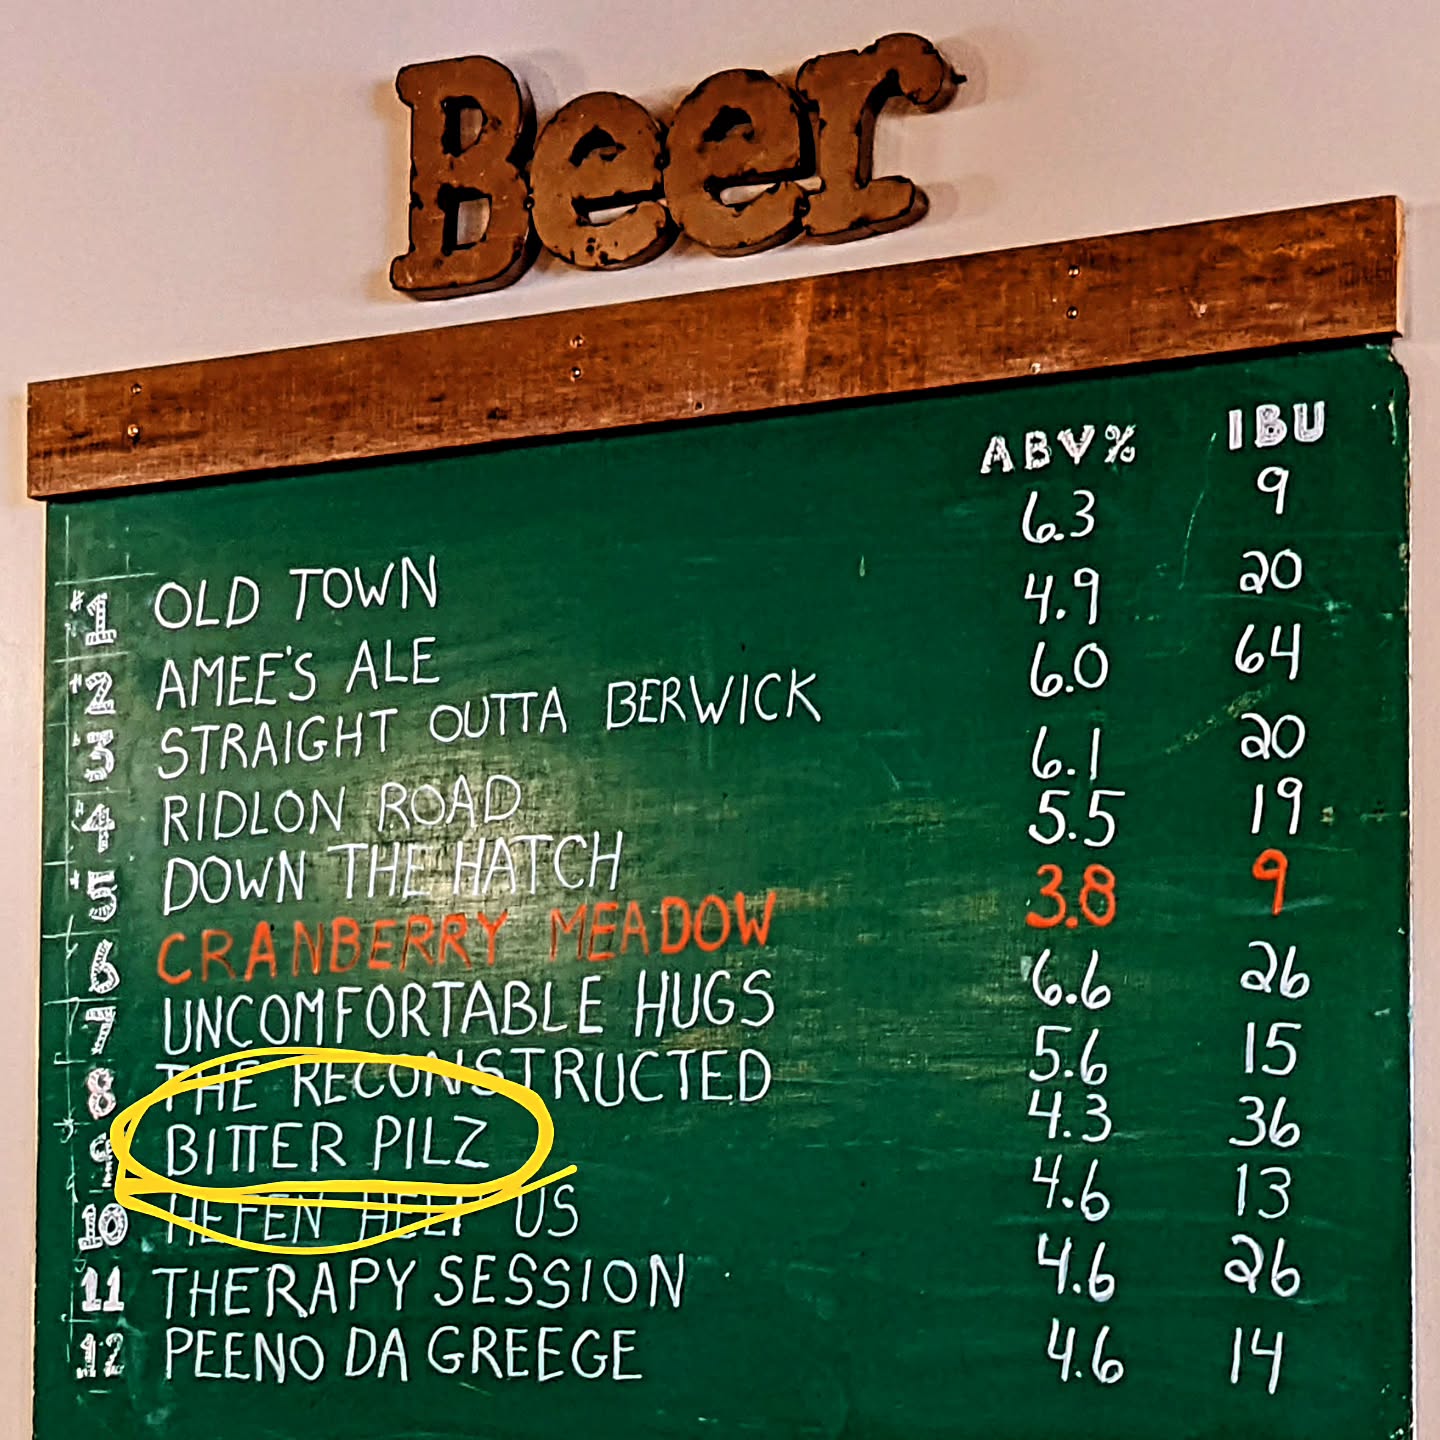 Beer
ABV% IBU
#1 OLD TOWN 6.3 9
#2 AMEE'S ALE 4.9 20
#3 STRAIGHT OUTTA BERWICK 6.0 64
#4 RIDLON ROAD 6.1 20
#5 DOWN THE HATCH 5.5 19
6 CRANBERRY MEADOW 3.8 9
7 UNCOMFORTABLE HUGS 6.6 26
8 THE RECONSTRUCTED 5.6 15
9 BITTER PILZ 4.3 36
10 HEFEN HELP US 4.6 13
11 THERAPY SESSION 4.6 26
12 PEENO DA GREEGE 4.6 14